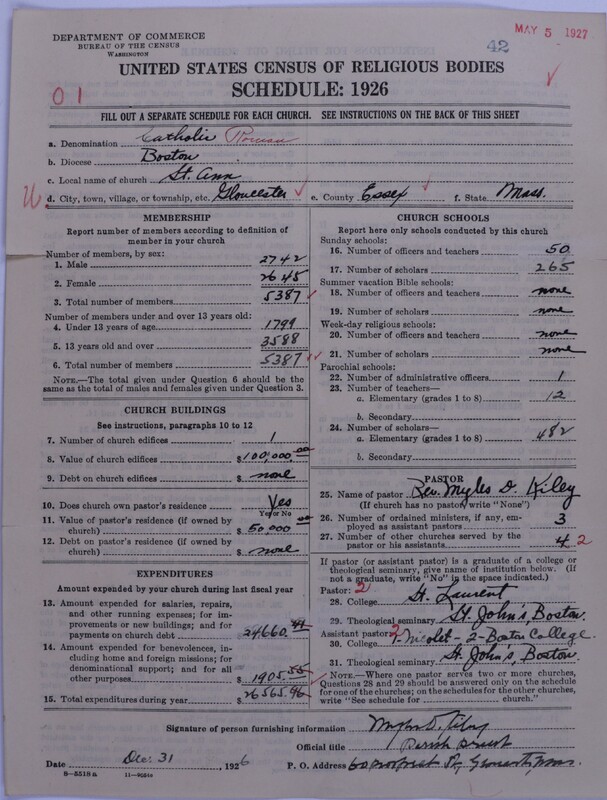 MAY 5 1927
DEPARTMENT OF COMMERCE
BUREAU OF THE CENSUS
WASHINGTON
42
UNITED STATES CENSUS OF RELIGIOUS BODIES
SCHEDULE: 1926
01
FILL OUT A SEPARATE SCHEDULE FOR EACH CHURCH. SEE INSTRUCTIONS ON THE BACK OF THIS SHEET
a. Denomination Catholic Roman
b. Diocese Boston
c. Local name of church St. Ann
d. City, town, village, or township, etc. Gloucester e. County Essex f. State Mass.
MEMBERSHIP
Report number of members according to definition of
member in your church
Number of members, by sex:
1. Male 2742
2. Female 2645
3. Total number of members 5387
Number of members under and over 13 years old:
4. Under 13 years of age 1799
5. 13 years old and over 3588
6. Total number of members 5387
NOTE.—The total given under Question 6 should be the
same as the total of males and females given under Question 3.
CHURCH BUILDINGS
See instructions, paragraphs 10 to 12
7. Number of church edifices 1
8. Value of church edifices $100,000.00
9. Debt on church edifices $ none
10. Does church own pastor's residence Yes
Yes or No
11. Value of pastor's residence (if owned by
church) $ 50,000 00
12. Debt on pastor's residence (if owned by
church) $ none
EXPENDITURES
Amount expended by your church during last fiscal year
13. Amount expended for salaries, repairs,
and other running expenses; for im-
provements or new buildings; and for
payments on church debt 24660.41
14. Amount expended for benevolences,
including home and foreign missions; for
denominational support; and for all
other purposes $ 1905.55
15. Total expenditures during year $26565.96
CHURCH SCHOOLS
Report here only schools conducted by this church
Sunday schools:
16. Number of officers and teachers 50
17. Number of scholars 265
Summer vacation Bible schools:
18. Number of officers and teachers none
19. Number of scholars none
Week-day religious schools:
20. Number of officers and teachers none
21. Number of scholars none
Parochial schools:
22. Number of administrative officers 1
23. Number of teachers—
a. Elementary (grades 1 to 8) 12
b. Secondary
24. Number of scholars—
a. Elementary (grades 1 to 8) 482
b. Secondary
PASTOR
25. Name of pastor Rev. Myles D. Kiley
(If church has no pastor, write "None")
26. Number of ordained ministers, if any, em-
ployed as assistant pastors 3
27. Number of other churches served by the
pastor or his assistants 4 2
If pastor (or assistant pastor) is a graduate of a college or
theological seminary, give name of institution below. (If
not a graduate, write "No" in the space indicated.)
Pastor: 2
28. College St. Laurent
29. Theological seminary St. John's, Boston.
Assistant pastor: 2
30. College 1-Nicolet - 2-Boston College.
31. Theological seminary St. John's, Boston.
NOTE.—Where one pastor serves two or more churches,
Questions 28 and 29 should be answered only on the schedule
for one of the churches; on the schedules for the other churches,
write "See schedule for church."
Signature of person furnishing information Myles D. Kiley
Official title Parish Priest
Date Dec. 31, 1926 P. O. Address Prospect St., Gloucester, Mass.
8—5518a 11—9054a